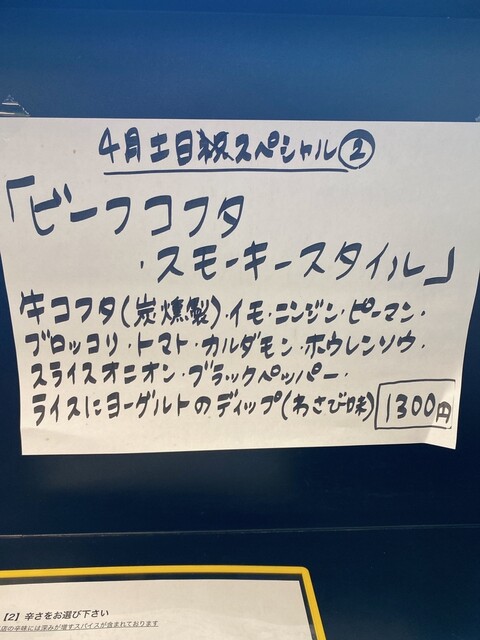 4月土日祝スペシャル②
「ビーフコフタ
・スモーキースタイル」
牛コフタ(炭燻製)・イモ・ニンジン・ピーマン・
ブロッコリ・トマト・カルダモン・ホウレンソウ・
スライスオニオン・ブラックペッパー・
ライスにヨーグルトのディップ(わさび味) 1300円
【2】辛さをお選び下さい
店の辛味には深みが増すスパイスが含まれております